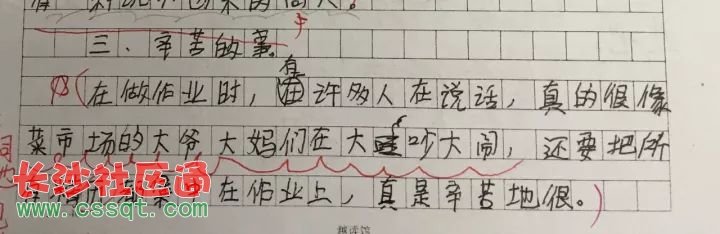 三、辛苦的事。
有
在做作业时,许多人在说话,真的很像
菜市场的大爷大妈们在大吵大闹,还要把所
长沙社区通
www.cssqt.com
中在作业上,真是辛苦地很。